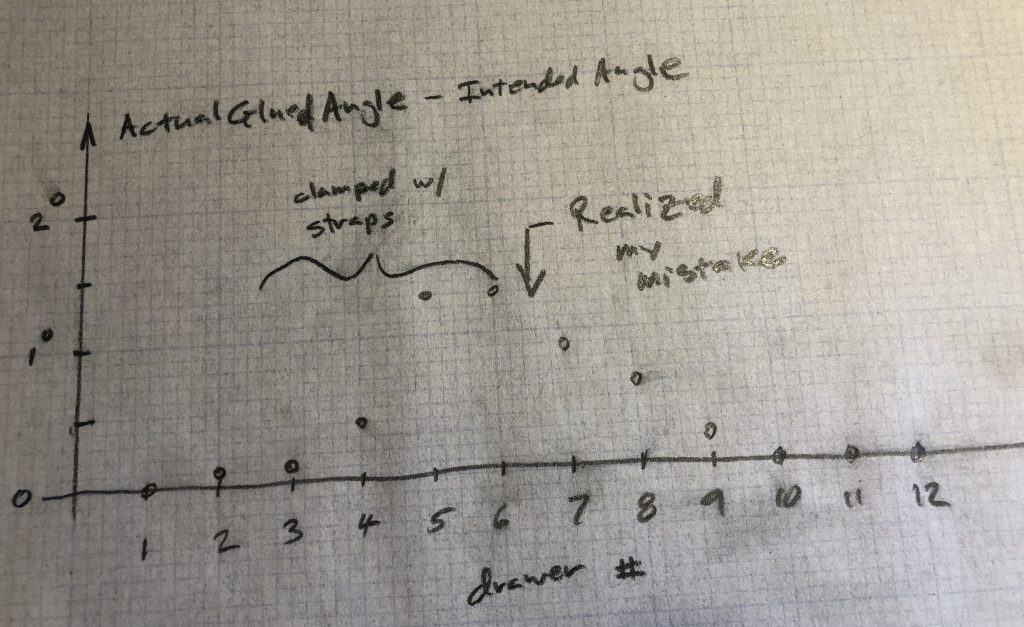 Actual Glued Angle - Intended Angle
clamped w/
straps
Realized
my
mistake
2°
1°
0
1 2 3 4 5 6 7 8 9 10 11 12
drawer #